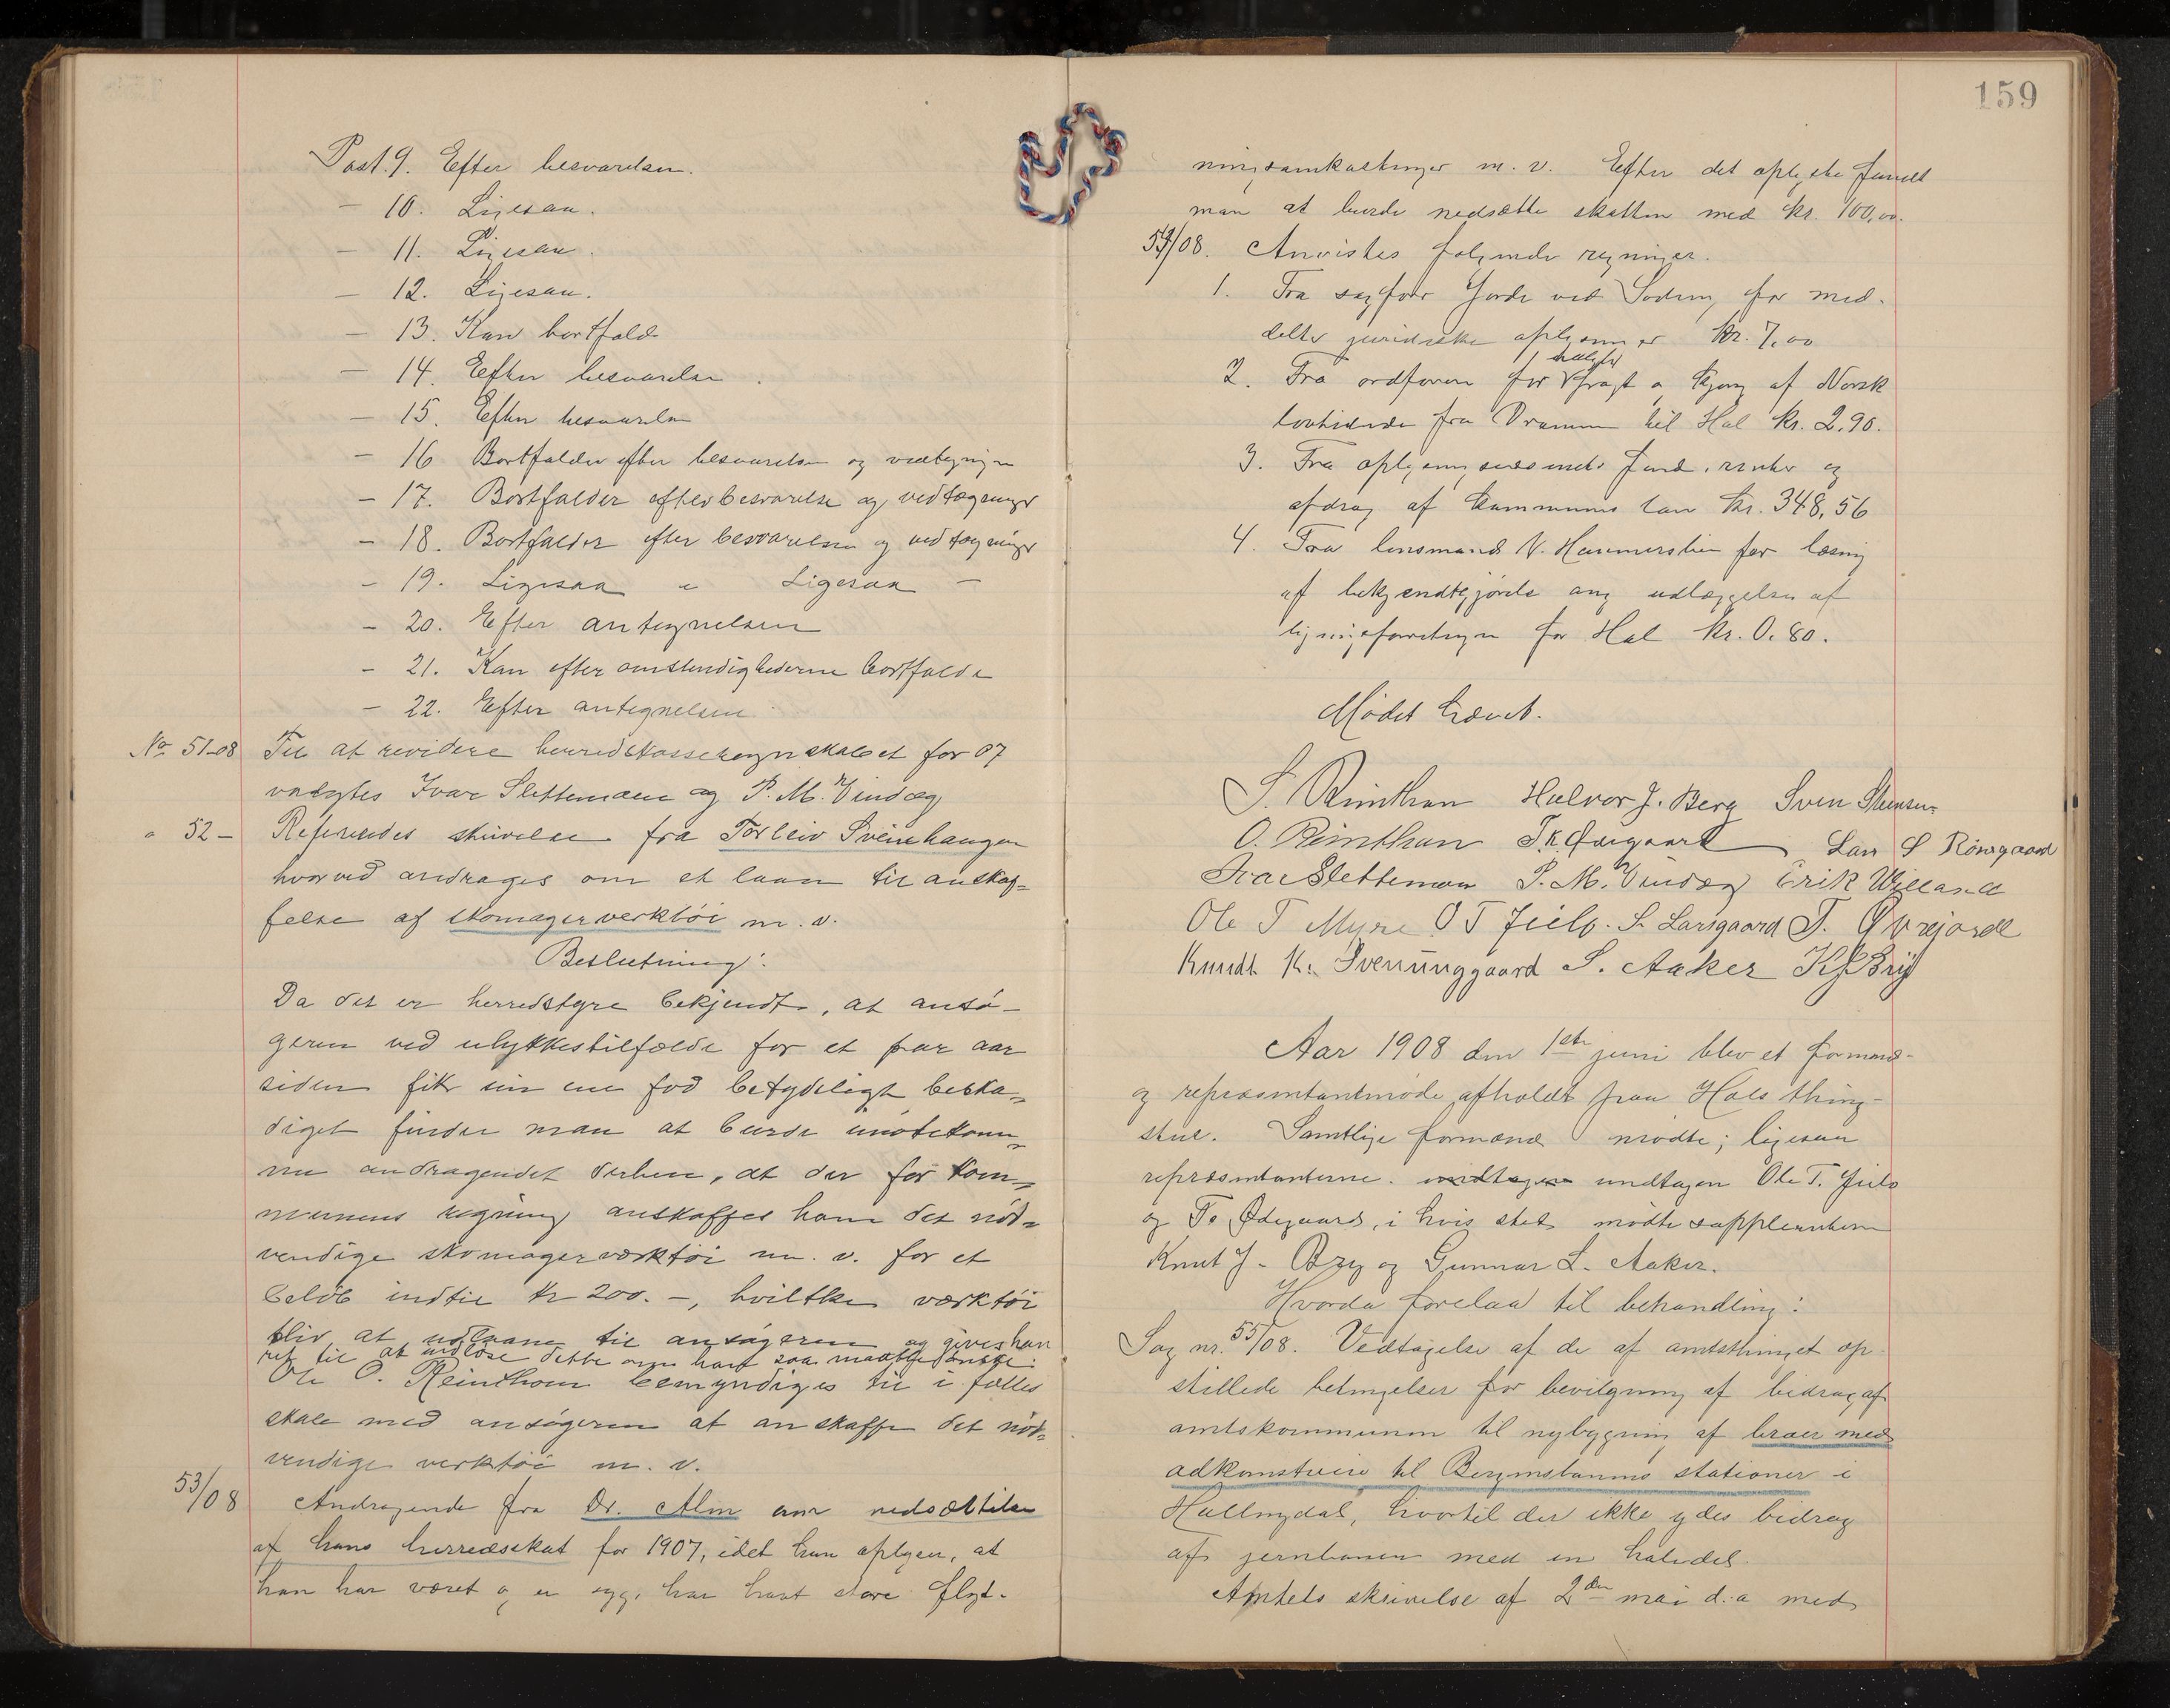 Post. 9. Efter besvarelsen.
— 10. Ligesaa.
— 11. Ligesaa.
— 12. Ligesaa.
— 13. Kan bortfalde
— 14. Efter besvarelse.
— 15. Efter besvarelse
— 16 Bortfalder efter besvarelse og vedtegninger
— 17. Bortfalder efter besvarelse og vedtegninger
— 18. Bortfalder efter besvarelsen og vedtegninger
— 19. Ligesaa — Ligesaa —
— 20. Efter antegnelsen
— 21. Kan efter omstendighederne bortfalde
— 22. Efter antegnelsen
No 51-08 Til at revidere herredskasseregnskabet for 07
valgtes Ivar Slettemoen og P. M. Vindeg
" 52 — Refereredes skrivelse fra Torleiv Sveinhaugen
hvorved andrages om et laan til anskaf=
felse af skomagerverktöi m. v.
Beslutning:
Da det er herredstyre bekjendt, at ansö-
geren ved ulykkestilfælde for et par aar
siden fik sin ene fod betydeligt beska=
diget finder man at burde imötekom=
me andragendet derhen, at der for kom=
munens regning anskaffes ham det nöd=
vendige skomagerværktöi m. v. for et
belöb indtil kr 200.-, hvilket værktöi
bliv at udlaane til ansögeren og gives han
ret til at indlöse dette om han saa maatte önske.
Ole O. Reinthon bemyndiges til i fælles
skab med ansögeren at anskaffe det nöd=
vendige verktöi m. v.
53/08 Andragende fra Dr. Alm om nedsættelse
af hans herredsskat for 1907, idet han oplyser, at
han har været og er syg, har havt store flyt-
159
ningsomkostninger m. v. Efter det oplyste fandt
man at burde nedsætte skatten med kr. 100,00.
54/08. Anvistes følgende regninger.
1. Fra sagfører Jorde ved Sodem, for med-
delte juridiske oplysninger kr. 7,00
2. Fra ordføreren for udlagt fragt og kjøring af Norsk
lovtidende fra Drammen til Hol kr. 2,90.
3. Fra oplysningsvæsenets fond, renter og
afdrag af kommunens laan kr. 348,56
4. Fra lensmand N. Hammersbøen for læsning
af bekjendtgjørelse ang udlæggelsen af
ligningsforretningen for Hol kr. 0.80.
Mødet hævet.
S. Reinthon Halvor J. Berg Sven Stensen
O. Reinthon T. K. Ødegaard Lars S Rönsgaard
Ivar Slettemoen P. M. Vindeg Erik Willand
Ole T Myre O T Juelo. S. Larsgaard T. Øvrejorde
Knudt K. Svenunggaard S. Aaker K J Bry
Aar 1908 den 1ste juni blev et formand-
og repræsentantmøde afholdt paa Hols thing-
stue. Samtlige formænd mødte; ligesaa
repræsentanterne. undtagen Ole T. Juelo
og T. Ødegaard, i hvis sted mødte suppleanterne
Knut J. Bry og Gunnar L. Aaker.
Hvorda forelaa til behandling:
Sag nr. 55/08. Vedtagelse af de af amtsthinget op-
stillede betingelser for bevilgning af bidrag af
amtskommunen til nybygning af broer med
adkomstveie til Bergensbanens stationer i
Hallingdal, hvortil der ikke ydes bidrag
af jernbanen med en halvdel.
Amtets skrivelse af 2den mai d. a med